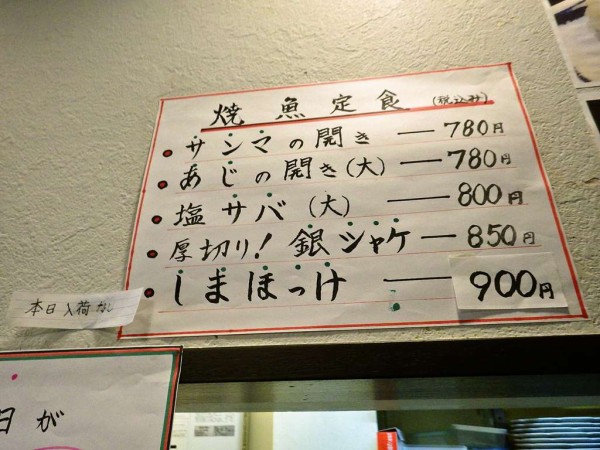 焼魚定食 (税込み)
サンマの開き ― 780円
あじの開き(大) ― 780円
塩サバ(大) ― 800円
厚切り!銀シャケ ― 850円
しまほっけ ― 900円
本日入荷なし
日が